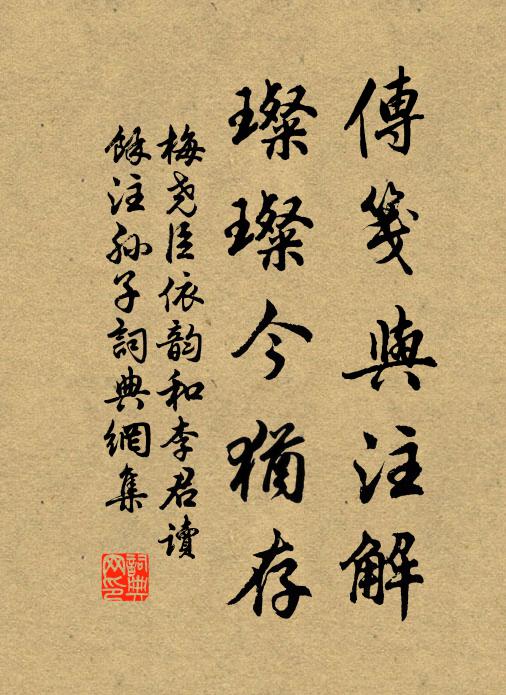 傳箋與注解
璨璨今猶存
梅堯臣依韵和李君讀
餘注孙子詞典網集
詞典网印